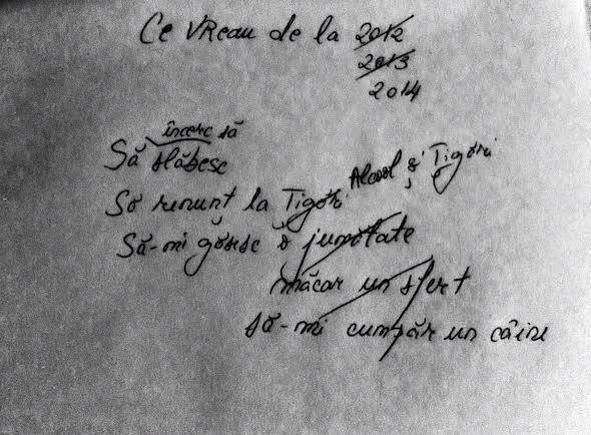 Ce vreau de la 2012
2013
2014
încerc să
Să slăbesc
Să renunț la Țigări Alcool și Țigări
Să-mi găsesc o jumătate
măcar un sfert
să-mi cumpăr un câine